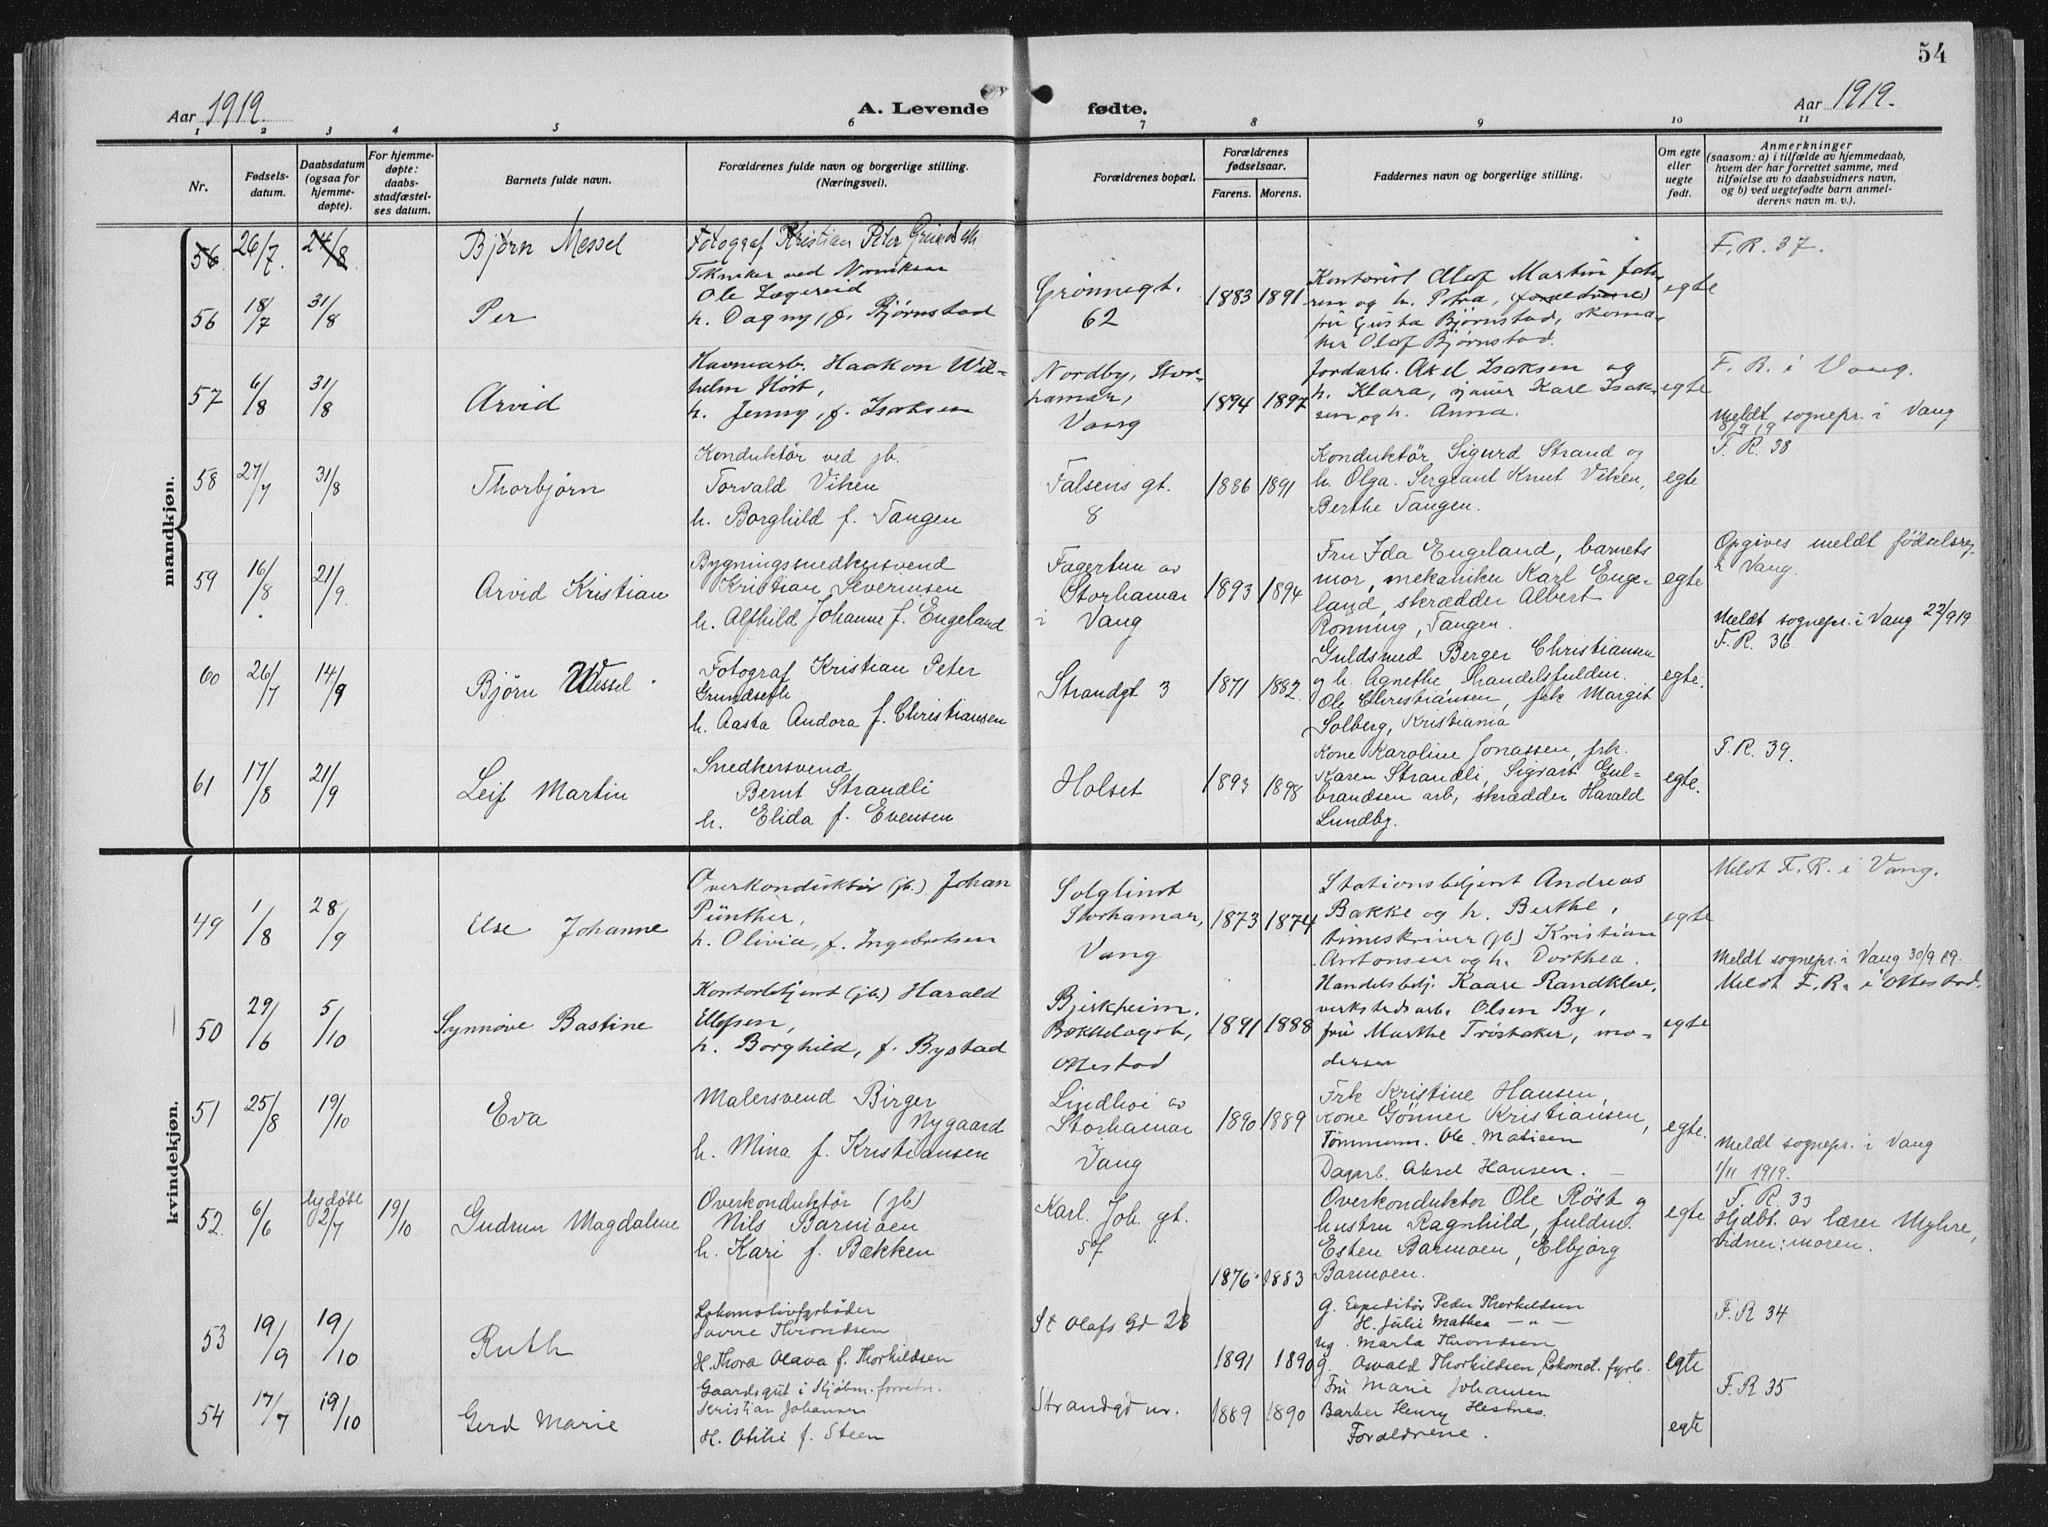 54
Aar 1919.
A. Levende fødte.
Aar 1919.
1 2 3 4 5 6 7 8 9 10 11
Nr.
Fødsels-
datum.
Daabsdatum
(ogsaa for
hjemme-
døpte).
For hjemme-
døpte:
daabs-
stadfæstel-
ses datum.
Barnets fulde navn.
Forældrenes fulde navn og borgerlige stilling.
(Næringsvei).
Forældrenes bopæl.
Forældrenes
fødselsaar.
Farens. Morens.
Faddernes navn og borgerlige stilling.
Om egte
eller
uegte
født.
Anmerkninger
(saasom: a) i tilfælde av hjemmedaab,
hvem der har forrettet samme, med
tilføielse av to daabsvidners navn,
og b) ved uegtefødte barn anmel-
derens navn m. v.).
mandkjøn.
56 26/7. 24/8 Bjørn Messel
Fotograf Kristian Peter
F. R. 37.
56 18/7 31/8 Per
Tekniker ved
Ole Lægreid
h. Dagny, f. Bjørnstad
Grønnegt.
62
1883 1891
Kontorist Olaf Martin
og h. Petra, (forældrene)
fru Gusta Bjørnstad,
Olaf Bjørnstad.
egte
57 6/8 31/8 Arvid
Havnearb. Haakon Wil-
helm Hort,
h. Jenny, f. Isaksen
Nordby, Stor-
hamar,
Vang
1894 1897
Jordarb. Axel Isaksen og
h. Klara, Karl Isak-
sen og h. Anna.
egte
F. R. i Vang.
Meldt sognepr. i Vang
8/9 19
58 27/7 31/8 Thorbjørn
Konduktør ved jb.
Torvald Viken
h. Borghild f. Tangen
Falsens gt.
8
1886 1891
Konduktør Sigurd Strand og
h. Olga. Sergeant Knut Viken,
Berthe Tangen.
egte
F. R. 38
59 16/8 21/9. Arvid Kristian
Bygningssnedkersvend
Kristian Severinsen
h. Alfhild Johanne f. Engeland
Fagertun av
Storhamar
i Vang
1893 1894
Fru Ida Engeland, barnets
mor, mekaniker Karl Enge-
land, skrædder Albert
Rønning, Tangen.
egte
Opgives meldt fødselsreg
i Vang.
Meldt sognepr. i Vang 22/9 19
60 26/7 14/9 Bjørn Wessel.
Fotograf Kristian Peter
Grundseth
h. Aasta Andora f. Christiansen
Strandgt 3
1871 1882
Guldsmed Berger Christiansen
og h. Agnethe. Handelsfuldm.
Ole Christiansen, frk Margit
Solberg, Kristiania
egte.
F. R. 36
61 17/8 21/9 Leif Martin
Snedkersvend
Bernt Strandli
h. Elida f. Evensen
Holset
1893 1898
Kone Karoline Jonassen, frk.
Karen Strandli, Sigvart Gul-
brandsen arb, skrædder Harald
Lundby.
egte.
F. R. 39.
kvindekjøn.
49 1/8 28/9 Else Johanne
Overkonduktør (jb.) Johan
Pünther,
h. Olivia, f. Ingebretsen
Solglimt
Storhamar,
Vang
1873 1874
Stationsbetjent Andreas
Bakke og h. Berthe,
timeskriver (jb.) Kristian
Antonsen og h. Dorthea.
egte
Meldt F. R. i Vang.
Meldt sognepr. i Vang 30/9 19.
50 29/6 5/10 Synnøve Bastine
Kontorbetjent (jb.) Harald
Ellefsen,
h. Borghild, f. Bystad
Bjerkheim,
Bækkelaget,
Ottestad
1891 1888
Handelsbetj. Kaare Randklev,
verkstedsarb. Olsen By,
fru Marthe Trøstaker, mo-
deren
egte
Meldt F. R. i Ottestad.
51 25/8 19/10 Eva
Malersvend Birger
Nygaard
h. Mina f. Kristiansen
Lindhoi av
Storhamar
i Vang
1890 1889
Frk Kristine Hansen,
Kone Gønner Kristiansen,
Tømmerm. Ole Matisen
Dagarb. Aksel Hansen.
egte.
Meldt sognepr. i Vang
1/11 1919.
52 6/6 hjdøbt 2/7 19/10 Gudrun Magdalene
Overkonduktør (jb)
Nils Barmoen
h. Kari f. Bækken
Karl. Joh. gt.
1876 1883
Overkonduktør Ole Røst og
hustru Ragnhild, fuldm.
Esten Barmoen, Elbjørg
Barmoen.
egte
F. R. 33
Hjdbt. av lærer Myhre,
vidner: moren.
53 19/9 19/10 Ruth
Lokomotivfyrbøder
Sverre Throndsen
H. Thora Olava f. Thorkildsen
St Olafs Gd 28
1891 1890
G. Expeditør Peder Thorkildsen
H. Julie Mathea — " —
Ug. Marta Throndsen
G. Oswald Thorkildsen, Lokomot. fyrb.
egte
F. R 34
54 17/7 19/10 Gerd Marie
Gaardsgut i Kjøbm. forretn.
Kristian Johansen
H. Otilie f. Steen
Strandgd nr.
1889 1890
Fru Marie Johansen
Barber Henry Hestnes.
Forældrene.
egte
F. R 35